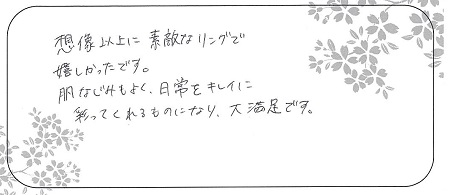 想像以上に素敵なリングで
嬉しかったです。
肌なじみもよく、日常をキレイに
彩ってくれるものになり、大満足です。